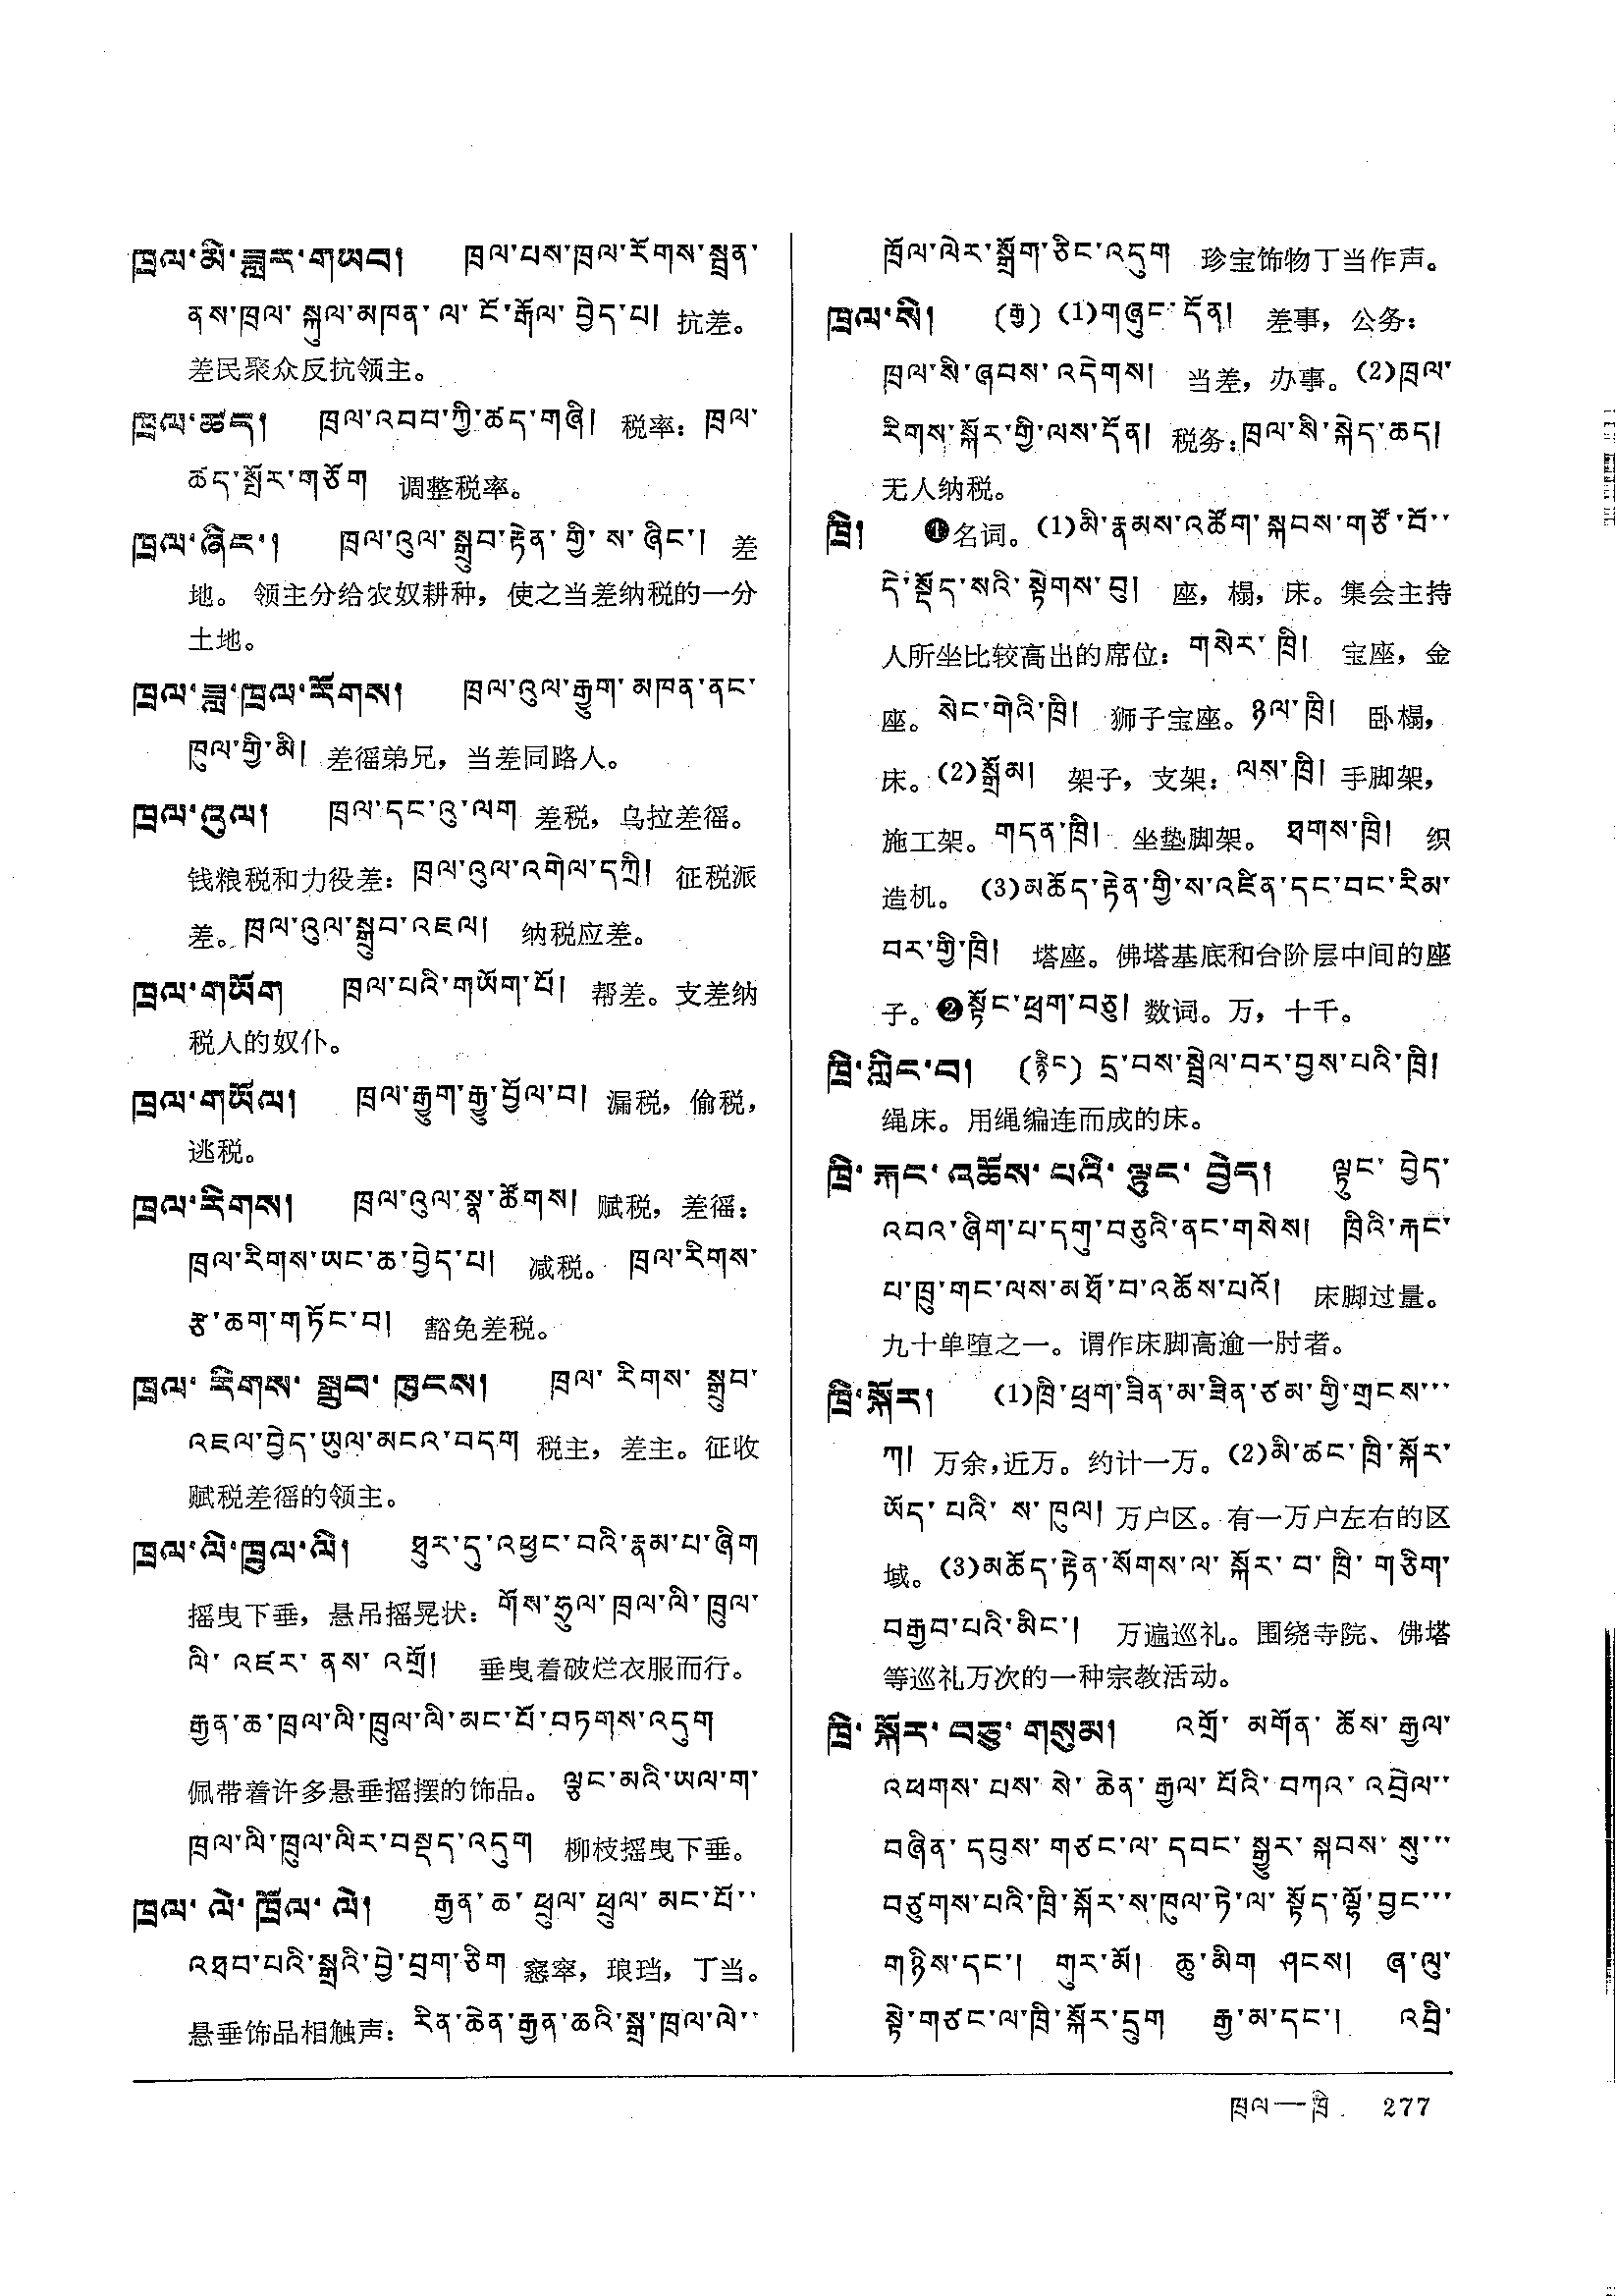 ཁྲལ་མི་ཟླར་གཡབ། ཁྲལ་པས་ཁྲལ་རོགས་སྦྲན་
ནས་ཁྲལ་ སྐུལ་མཁན་ ལ་ ངོ་རྒོལ་ བྱེད་པ། 抗差。
差民聚众反抗领主。
ཁྲལ་ཚད། ཁྲལ་འབབ་ཀྱི་ཚད་གཞི། 税率：ཁྲལ་
ཚད་སྤོར་གཅོག 调整税率。
ཁྲལ་ཞིང་། ཁྲལ་འུལ་སྒྲུབ་རྟེན་ གྱི་ ས་ ཞིང་། 差
地。 领主分给农奴耕种，使之当差纳税的一分
土地。
ཁྲལ་ཟླ་ཁྲལ་རོགས། ཁྲལ་འུལ་རྒྱུག་ མཁན་ནང་
ཁུལ་གྱི་མི། 差徭弟兄，当差同路人。
ཁྲལ་འུལ། ཁྲལ་དང་འུ་ལག 差税，乌拉差徭。
钱粮税和力役差：ཁྲལ་འུལ་འགེལ་དཀྲི། 征税派
差。ཁྲལ་འུལ་སྒྲུབ་འཇལ། 纳税应差。
ཁྲལ་གཡོག ཁྲལ་པའི་གཡོག་པོ། 帮差。支差纳
税人的奴仆。
ཁྲལ་གཡོལ། ཁྲལ་རྒྱུག་རྒྱུ་བྱོལ་བ། 漏税，偷税，
逃税。
ཁྲལ་རིགས། ཁྲལ་འུལ་སྣ་ཚོགས། 赋税，差徭：
ཁྲལ་རིགས་ཡང་ཆ་བྱེད་པ། 减税。 ཁྲལ་རིགས་
རྩ་ཆག་གཏོང་བ། 豁免差税。
ཁྲལ་ རིགས་ སྒྲུབ་ ཁུངས། ཁྲལ་ རིགས་ སྒྲུབ་
འཇལ་བྱེད་ཡུལ་མངའ་བདག 税主，差主。征收
赋税差徭的领主。
ཁྲལ་ལི་ཁྲུལ་ལི། ཐུར་དུ་འཕྱང་བའི་རྣམ་པ་ཞིག
摇曳下垂，悬吊摇晃状：གོས་ཧྲུལ་ཁྲལ་ལི་ཁྲུལ་
ལི་ འཛར་ ནས་ འགྲོ། 垂曳着破烂衣服而行。
རྒྱན་ཆ་ཁྲལ་ལི་ཁྲུལ་ལི་མང་པོ་བཏགས་འདུག
佩带着许多悬垂摇摆的饰品。 ལྕང་མའི་ཡལ་ག་
ཁྲལ་ལི་ཁྲུལ་ལིར་བསྡད་འདུག 柳枝摇曳下垂。
ཁྲལ་ ལེ་ ཁྲོལ་ ལེ། རྒྱན་ ཆ་ ཕྲུལ་ ཕྲུལ་ མང་པོ་་
འཐབ་པའི་སྒྲའི་བྱེ་བྲག་ཅིག 窸窣，琅珰，丁当。
悬垂饰品相触声：རིན་ཆེན་རྒྱན་ཆའི་སྒྲ་ཁྲལ་ལེ་་
ཁྲོལ་ལེར་སྒྲོག་ཅིང་འདུག 珍宝饰物丁当作声。
ཁྲལ་སི། (རྒྱ) (1)གཞུང་དོན། 差事，公务：
ཁྲལ་སི་ཞབས་འདེགས། 当差，办事。(2)ཁྲལ་
རིགས་སྐོར་གྱི་ལས་དོན། 税务：ཁྲལ་སི་སྐེད་ཆད།
无人纳税。
ཁྲི། ❶名词。(1)མི་རྣམས་འཚོག་སྐབས་གཙོ་བོ་་
དེ་སྡོད་སའི་སྟེགས་བུ། 座，榻，床。集会主持
人所坐比较高出的席位：གསེར་ ཁྲི། 宝座，金
座。སེང་གེའི་ཁྲི། 狮子宝座。ཉལ་ཁྲི། 卧榻，
床。(2)སྒྲོམ། 架子，支架：ལས་ཁྲི། 手脚架，
施工架。གདན་ཁྲི། 坐垫脚架。 ཐགས་ཁྲི། 织
造机。 (3)མཆོད་རྟེན་གྱི་ས་འཛིན་དང་བང་རིམ་
བར་གྱི་ཁྲི། 塔座。佛塔基底和台阶层中间的座
子。❷སྟོང་ཕྲག་བཅུ། 数词。万，十千。
ཁྲི་ཀླིང་བ། (རྙིང) དྲ་བས་སྦྲེལ་བར་བྱས་པའི་ཁྲི།
绳床。用绳编连而成的床。
ཁྲི་ རྐང་ འཆོས་ པའི་ ལྟུང་ བྱེད། ལྟུང་ བྱེད་
འབའ་ཞིག་པ་དགུ་བཅུའི་ནང་གསེས། ཁྲིའི་རྐང་
པ་ཁྲུ་གང་ལས་མཐོ་བ་འཆོས་པའོ། 床脚过量。
九十单堕之一。谓作床脚高逾一肘者。
ཁྲི་སྐོར། (1)ཁྲི་ཕྲག་ཟིན་མ་ཟིན་ཙམ་གྱི་གྲངས་་་
ཀ། 万余，近万。约计一万。(2)མི་ཚང་ཁྲི་སྐོར་
ཡོད་ པའི་ ས་ ཁུལ། 万户区。有一万户左右的区
域。(3)མཆོད་རྟེན་སོགས་ལ་ སྐོར་ བ་ ཁྲི་ གཅིག་
བརྒྱབ་པའི་མིང་། 万遍巡礼。围绕寺院、佛塔
等巡礼万次的一种宗教活动。
ཁྲི་ སྐོར་ བཅུ་ གསུམ། འགྲོ་ མགོན་ ཆོས་ རྒྱལ་
འཕགས་ པས་ སེ་ ཆེན་ རྒྱལ་ པོའི་ བཀའ་ འབྲེལ་་
བཞིན་ དབུས་ གཙང་ལ་ དབང་ སྒྱུར་ སྐབས་ སུ་་་
བཙུགས་པའི་ཁྲི་སྐོར་ས་ཁུལ་ཏེ་ལ་ སྟོད་ལྷོ་བྱང་་་
གཉིས་དང་། གུར་མོ། ཆུ་མིག ཤངས། ཞ་ལུ་
སྟེ་གཙང་ལ་ཁྲི་སྐོར་དྲུག རྒྱ་མ་དང་། འབྲི་
ཁྲལ—ཁྲི 277